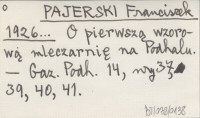 PAJERSKI Franciszek
1926... O pierwszą wzoro-
wą mleczarnię na Podhalu.
— Gaz. Podh. 14, nry 37,
39, 40, 41.